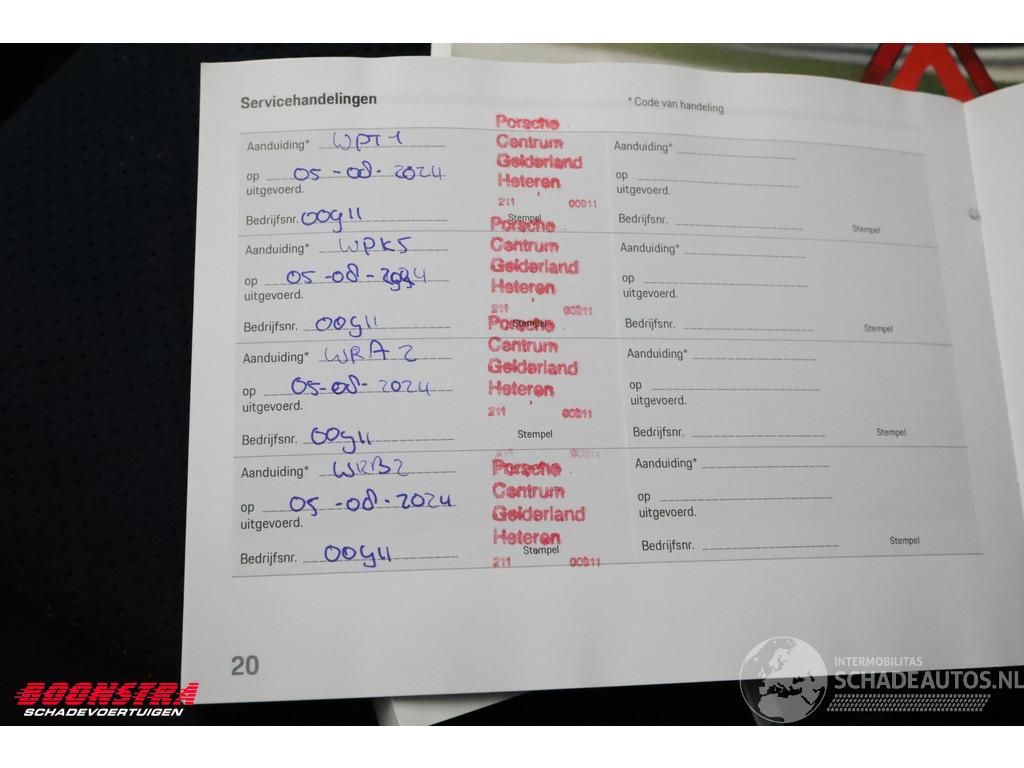 Servicehandelingen
* Code van handeling
Aanduiding* WPT1
op 05-08-2024
uitgevoerd.
Bedrijfsnr. 00911
Porsche
Centrum
Gelderland
Heteren
211 00911
Stempel
Aanduiding* WPK5
op 05-08-2024
uitgevoerd.
Bedrijfsnr. 00911
Porsche
Centrum
Gelderland
Heteren
211 00911
Stempel
Aanduiding* WRA2
op 05-08-2024
uitgevoerd.
Bedrijfsnr. 00911
Porsche
Centrum
Gelderland
Heteren
211 00911
Stempel
Aanduiding* WRB2
op 05-08-2024
uitgevoerd.
Bedrijfsnr. 00911
211 00911
Porsche
Centrum
Gelderland
Heteren
Stempel
211 00911
Aanduiding*
op
uitgevoerd.
Bedrijfsnr.
Stempel
Aanduiding*
op
uitgevoerd.
Bedrijfsnr.
Stempel
Aanduiding*
op
uitgevoerd.
Bedrijfsnr.
Stempel
Aanduiding*
op
uitgevoerd.
Bedrijfsnr.
Stempel
20
BOONSTRA
SCHADEVOERTUIGEN
INTERMOBILITAS
SCHADEAUTOS.NL